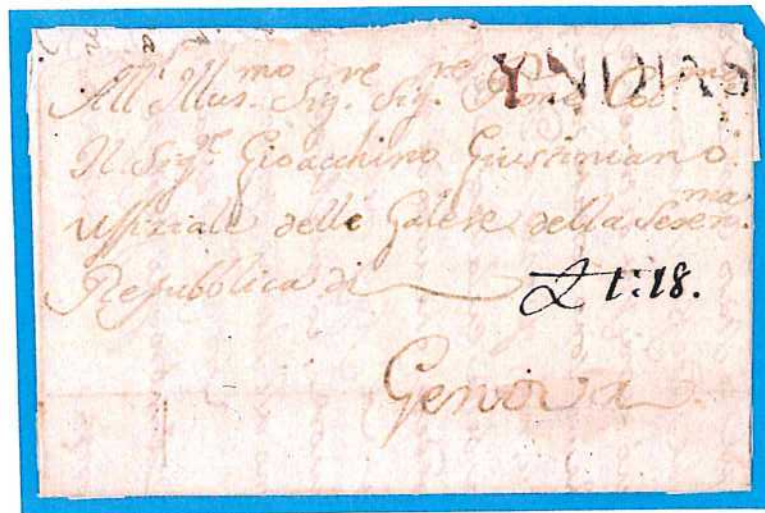 YNDIAS
All Illus.mo Sig.re Sig.re
Il Sig.re Gioacchino Giustiniano
Uffiziale delle Galere della Seren.ma
Repubblica di
£ 1:18.
Genova